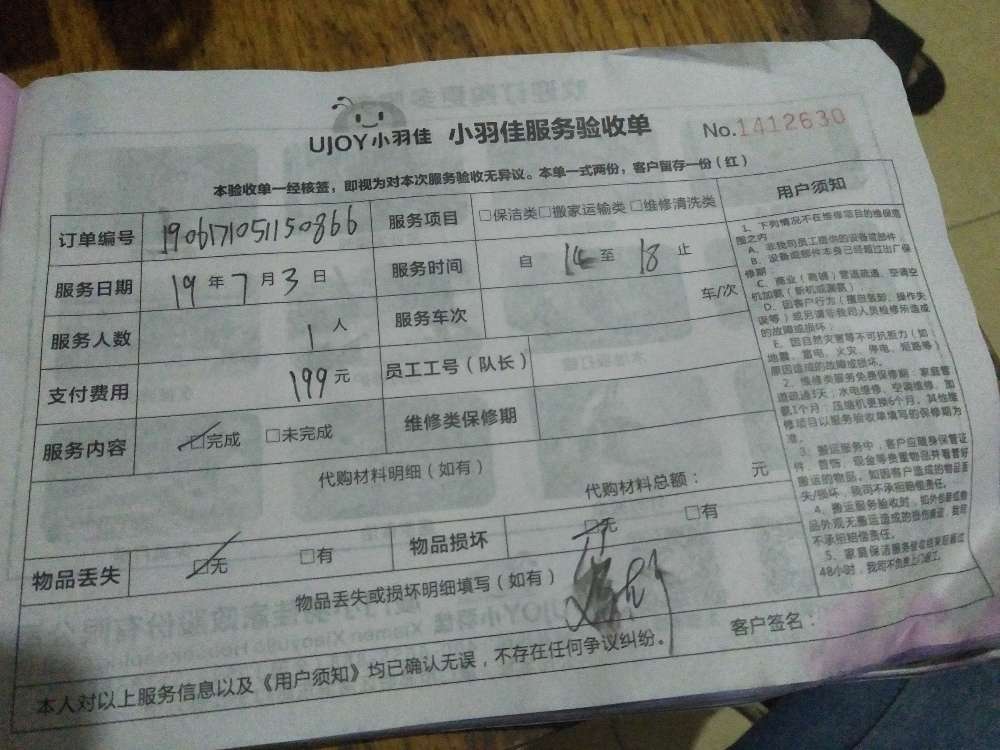 UJOY小羽佳 小羽佳服务验收单 No.1412630
本验收单一经核签，即视为对本次服务验收无异议。本单一式两份，客户留存一份（红）
订单编号 1906171051150866 服务项目 □保洁类□搬家运输类□维修清洗类
服务日期 19年7月3日 服务时间 自 14 至 18 止
服务人数 1人 服务车次 车/次
支付费用 199元 员工工号（队长）
服务内容 □完成 □未完成 维修类保修期
代购材料明细（如有）
代购材料总额： 元
物品丢失 □无 □有 物品损坏 □无 □有
物品丢失或损坏明细填写（如有）
本人对以上服务信息以及《用户须知》均已确认无误，不存在任何争议纠纷。 客户签名：
用户须知
1、下列情况不在维修项目的维保范
围之内
A、非我司员工提供的设备或部件
B、设备或部件本身已经超过出厂保
修期
C、商业（商城）管道疏通、空调空
机加氨（新机或漏氨）
D、因客户行为（擅自装卸、操作失
误等）或另请非我司人员检修所造成
的故障或损坏
E、因自然灾害等不可抗拒力（如：
地震、雷电、火灾、停电、短路等）
原因造成的故障或损坏。
2、维修类服务免费保修期：家庭管
道疏通3天；水电维修、空调维修、加
氨1个月；压缩机更换6个月，其他维
修项目以服务验收单填写的保修期为
准。
3、搬运服务中，客户应随身保管证
件、首饰、现金等贵重物品并看管好
搬运的物品，如因客户造成的物品丢
失/损坏，我司不承担赔偿责任。
4、搬运服务验收时，如外包装或物
品外观无搬运造成的损伤痕迹，我司
不承担赔偿责任。
5、家庭保洁服务验收结束后超过
48小时，我司不负责上门返工。